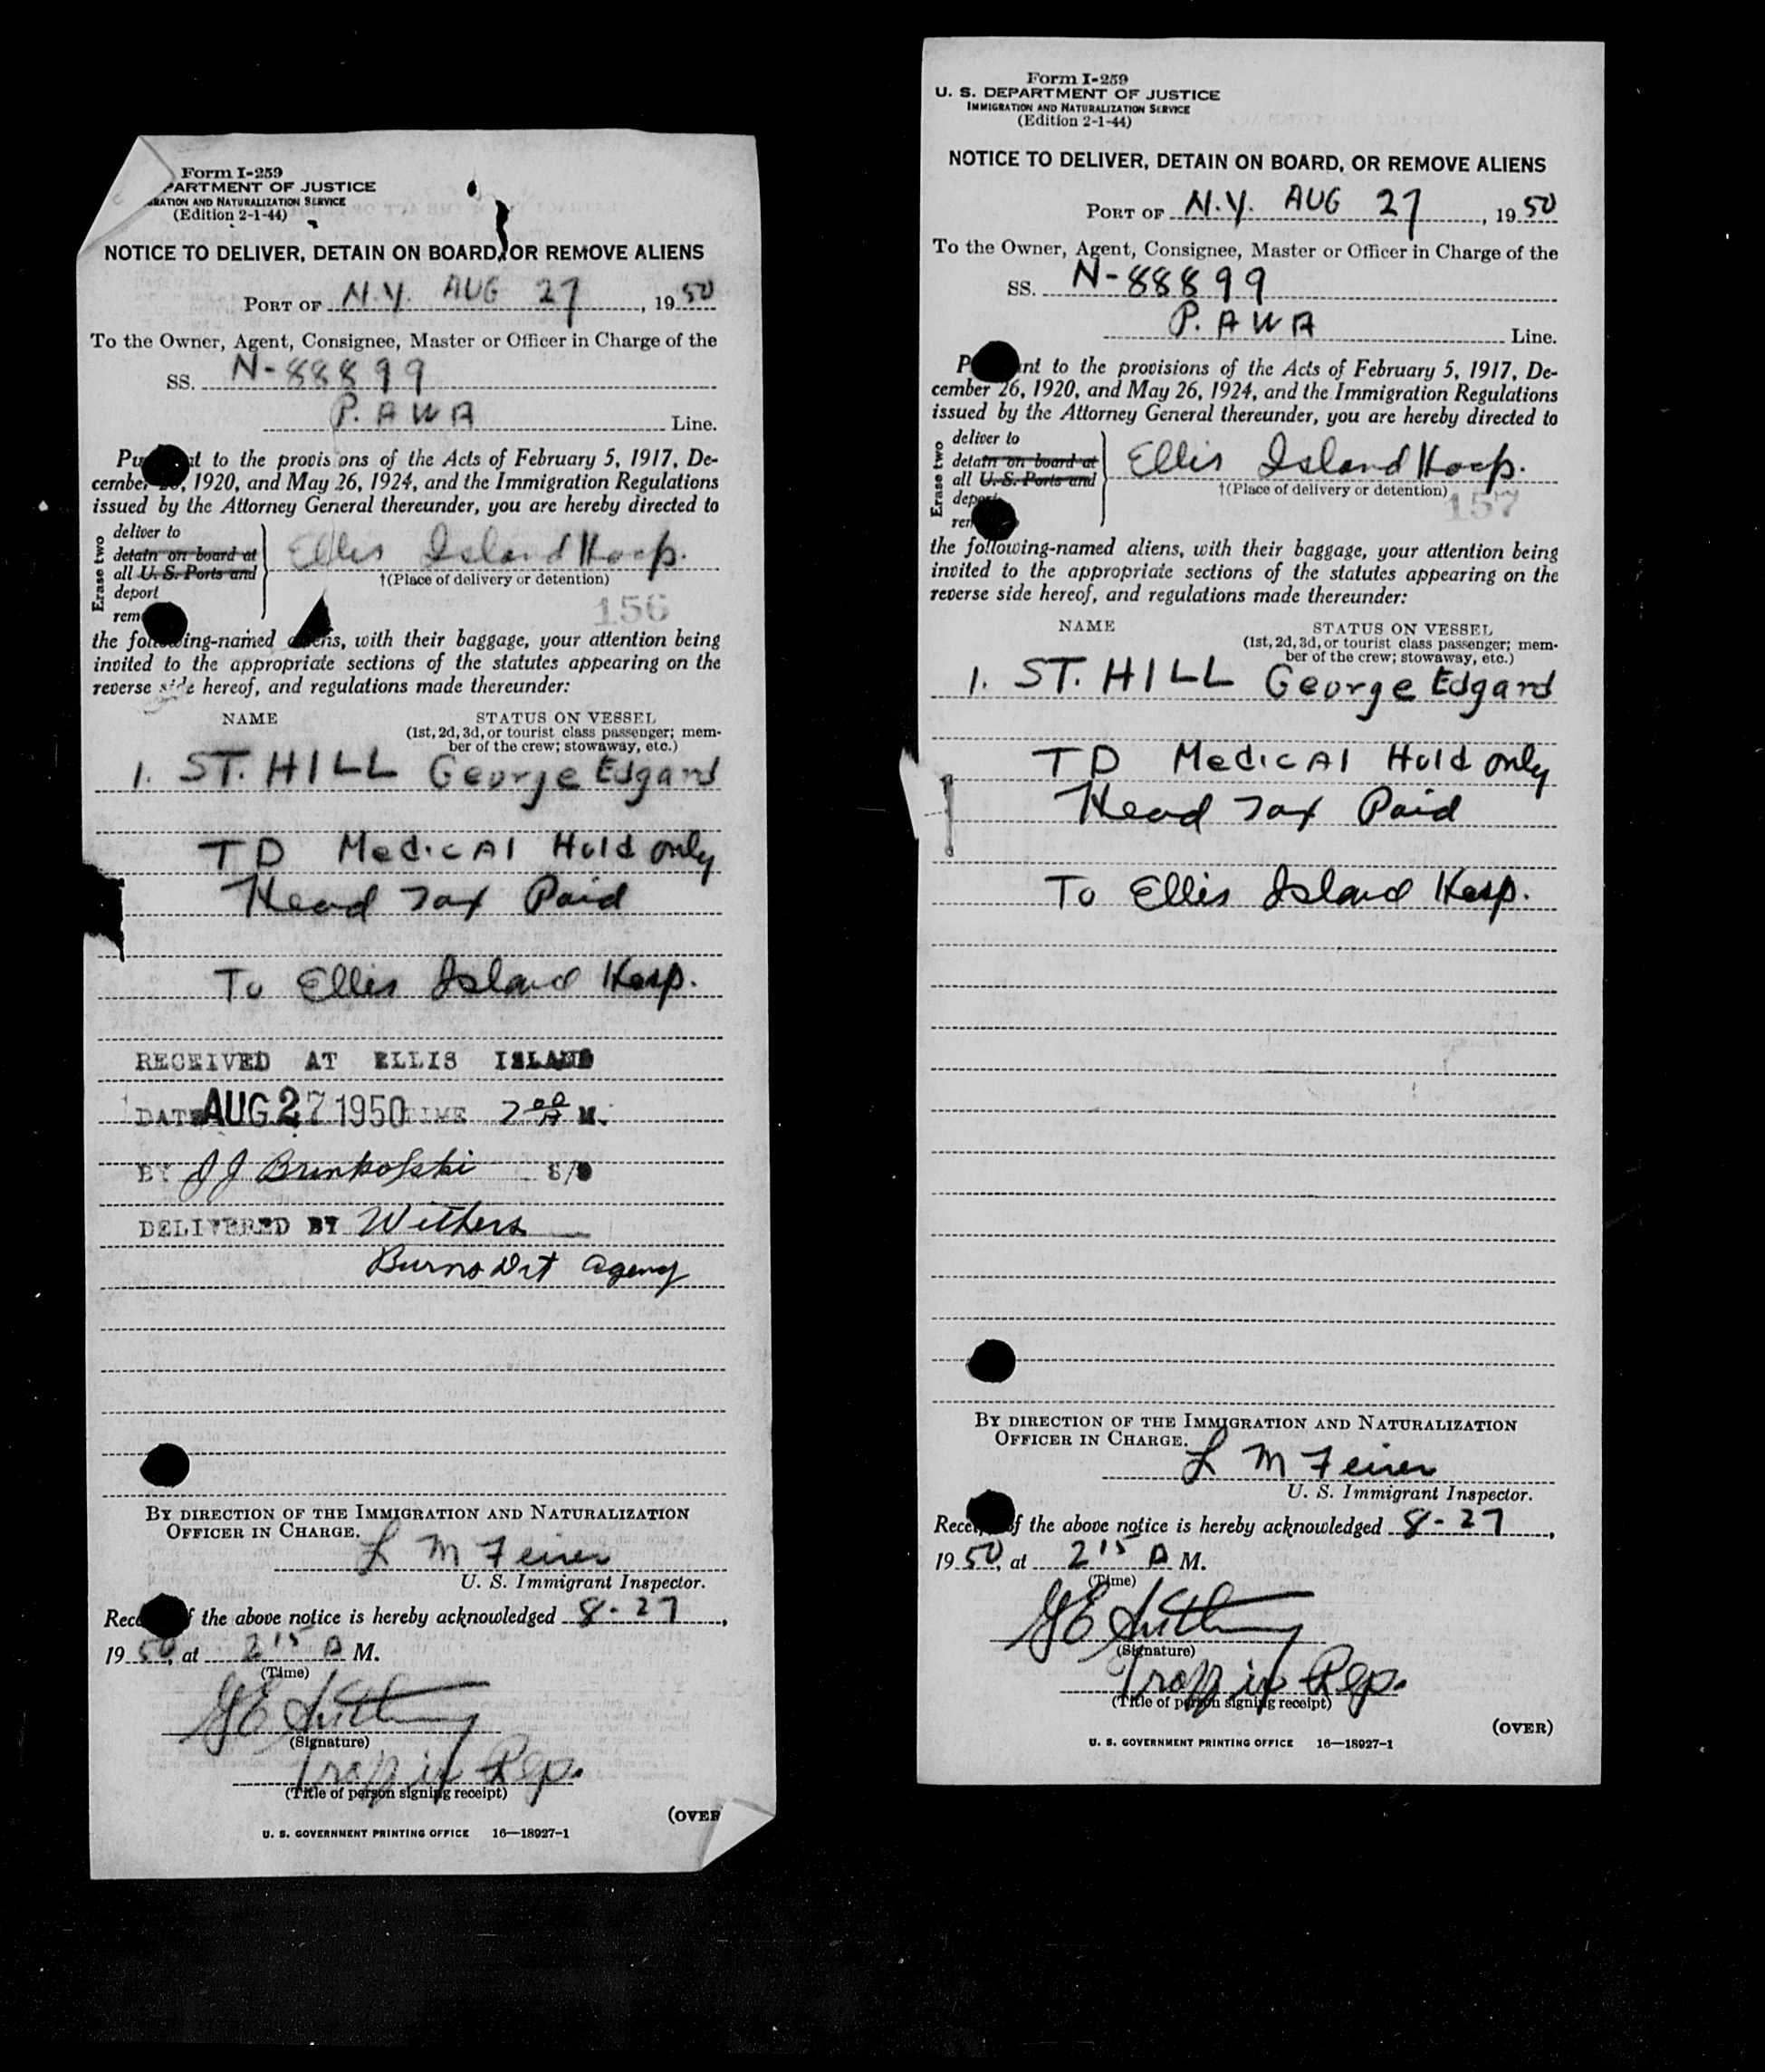 Form I-259
PARTMENT OF JUSTICE
RATION AND NATURALIZATION SERVICE
(Edition 2-1-44)
NOTICE TO DELIVER, DETAIN ON BOARD, OR REMOVE ALIENS
PORT OF N.Y. AUG 27, 1950
To the Owner, Agent, Consignee, Master or Officer in Charge of the
SS. N-88899
P. AWA Line.
Pu t to the provisions of the Acts of February 5, 1917, De-
cember , 1920, and May 26, 1924, and the Immigration Regulations
issued by the Attorney General thereunder, you are hereby directed to
Erase two
deliver to
detain on board at
all U. S. Ports and
deport
rem
Ellis Island Hosp.
†(Place of delivery or detention)
156
the following-named aliens, with their baggage, your attention being
invited to the appropriate sections of the statutes appearing on the
reverse side hereof, and regulations made thereunder:
NAME STATUS ON VESSEL
(1st, 2d, 3d, or tourist class passenger; mem-
ber of the crew; stowaway, etc.)
1. ST. HILL George Edgard
TD Medical Hold only
Head Tax Paid
To Ellis Island Hosp.
RECEIVED AT ELLIS ISLAND
DATE AUG 27 1950 TIME 7 00 A M.
BY J J Brinkofski
DELIVERED BY Withers
Burns Det Agency
BY DIRECTION OF THE IMMIGRATION AND NATURALIZATION
OFFICER IN CHARGE.
L M Feirer
U. S. Immigrant Inspector.
Rece f the above notice is hereby acknowledged 8-27,
1950, at 2 15 A M.
(Time)
(Signature)
Traffic Rep.
(Title of person signing receipt)
(OVER
U. S. GOVERNMENT PRINTING OFFICE 16—18927-1
Form I-259
U. S. DEPARTMENT OF JUSTICE
IMMIGRATION AND NATURALIZATION SERVICE
(Edition 2-1-44)
NOTICE TO DELIVER, DETAIN ON BOARD, OR REMOVE ALIENS
PORT OF N.Y. AUG 27, 1950
To the Owner, Agent, Consignee, Master or Officer in Charge of the
SS. N-88899
P. AWA Line.
P nt to the provisions of the Acts of February 5, 1917, De-
cember 26, 1920, and May 26, 1924, and the Immigration Regulations
issued by the Attorney General thereunder, you are hereby directed to
Erase two
deliver to
detain on board at
all U. S. Ports and
deport
rem
Ellis Island Hosp.
†(Place of delivery or detention)
157
the following-named aliens, with their baggage, your attention being
invited to the appropriate sections of the statutes appearing on the
reverse side hereof, and regulations made thereunder:
NAME STATUS ON VESSEL
(1st, 2d, 3d, or tourist class passenger; mem-
ber of the crew; stowaway, etc.)
1. ST. HILL George Edgard
TD Medical Hold only
Head Tax Paid
To Ellis Island Hosp.
BY DIRECTION OF THE IMMIGRATION AND NATURALIZATION
OFFICER IN CHARGE.
L M Feirer
U. S. Immigrant Inspector.
Rece f the above notice is hereby acknowledged 8-27,
1950, at 2 15 A M.
(Time)
(Signature)
Traffic Rep.
(Title of person signing receipt)
(OVER)
U. S. GOVERNMENT PRINTING OFFICE 16—18927-1